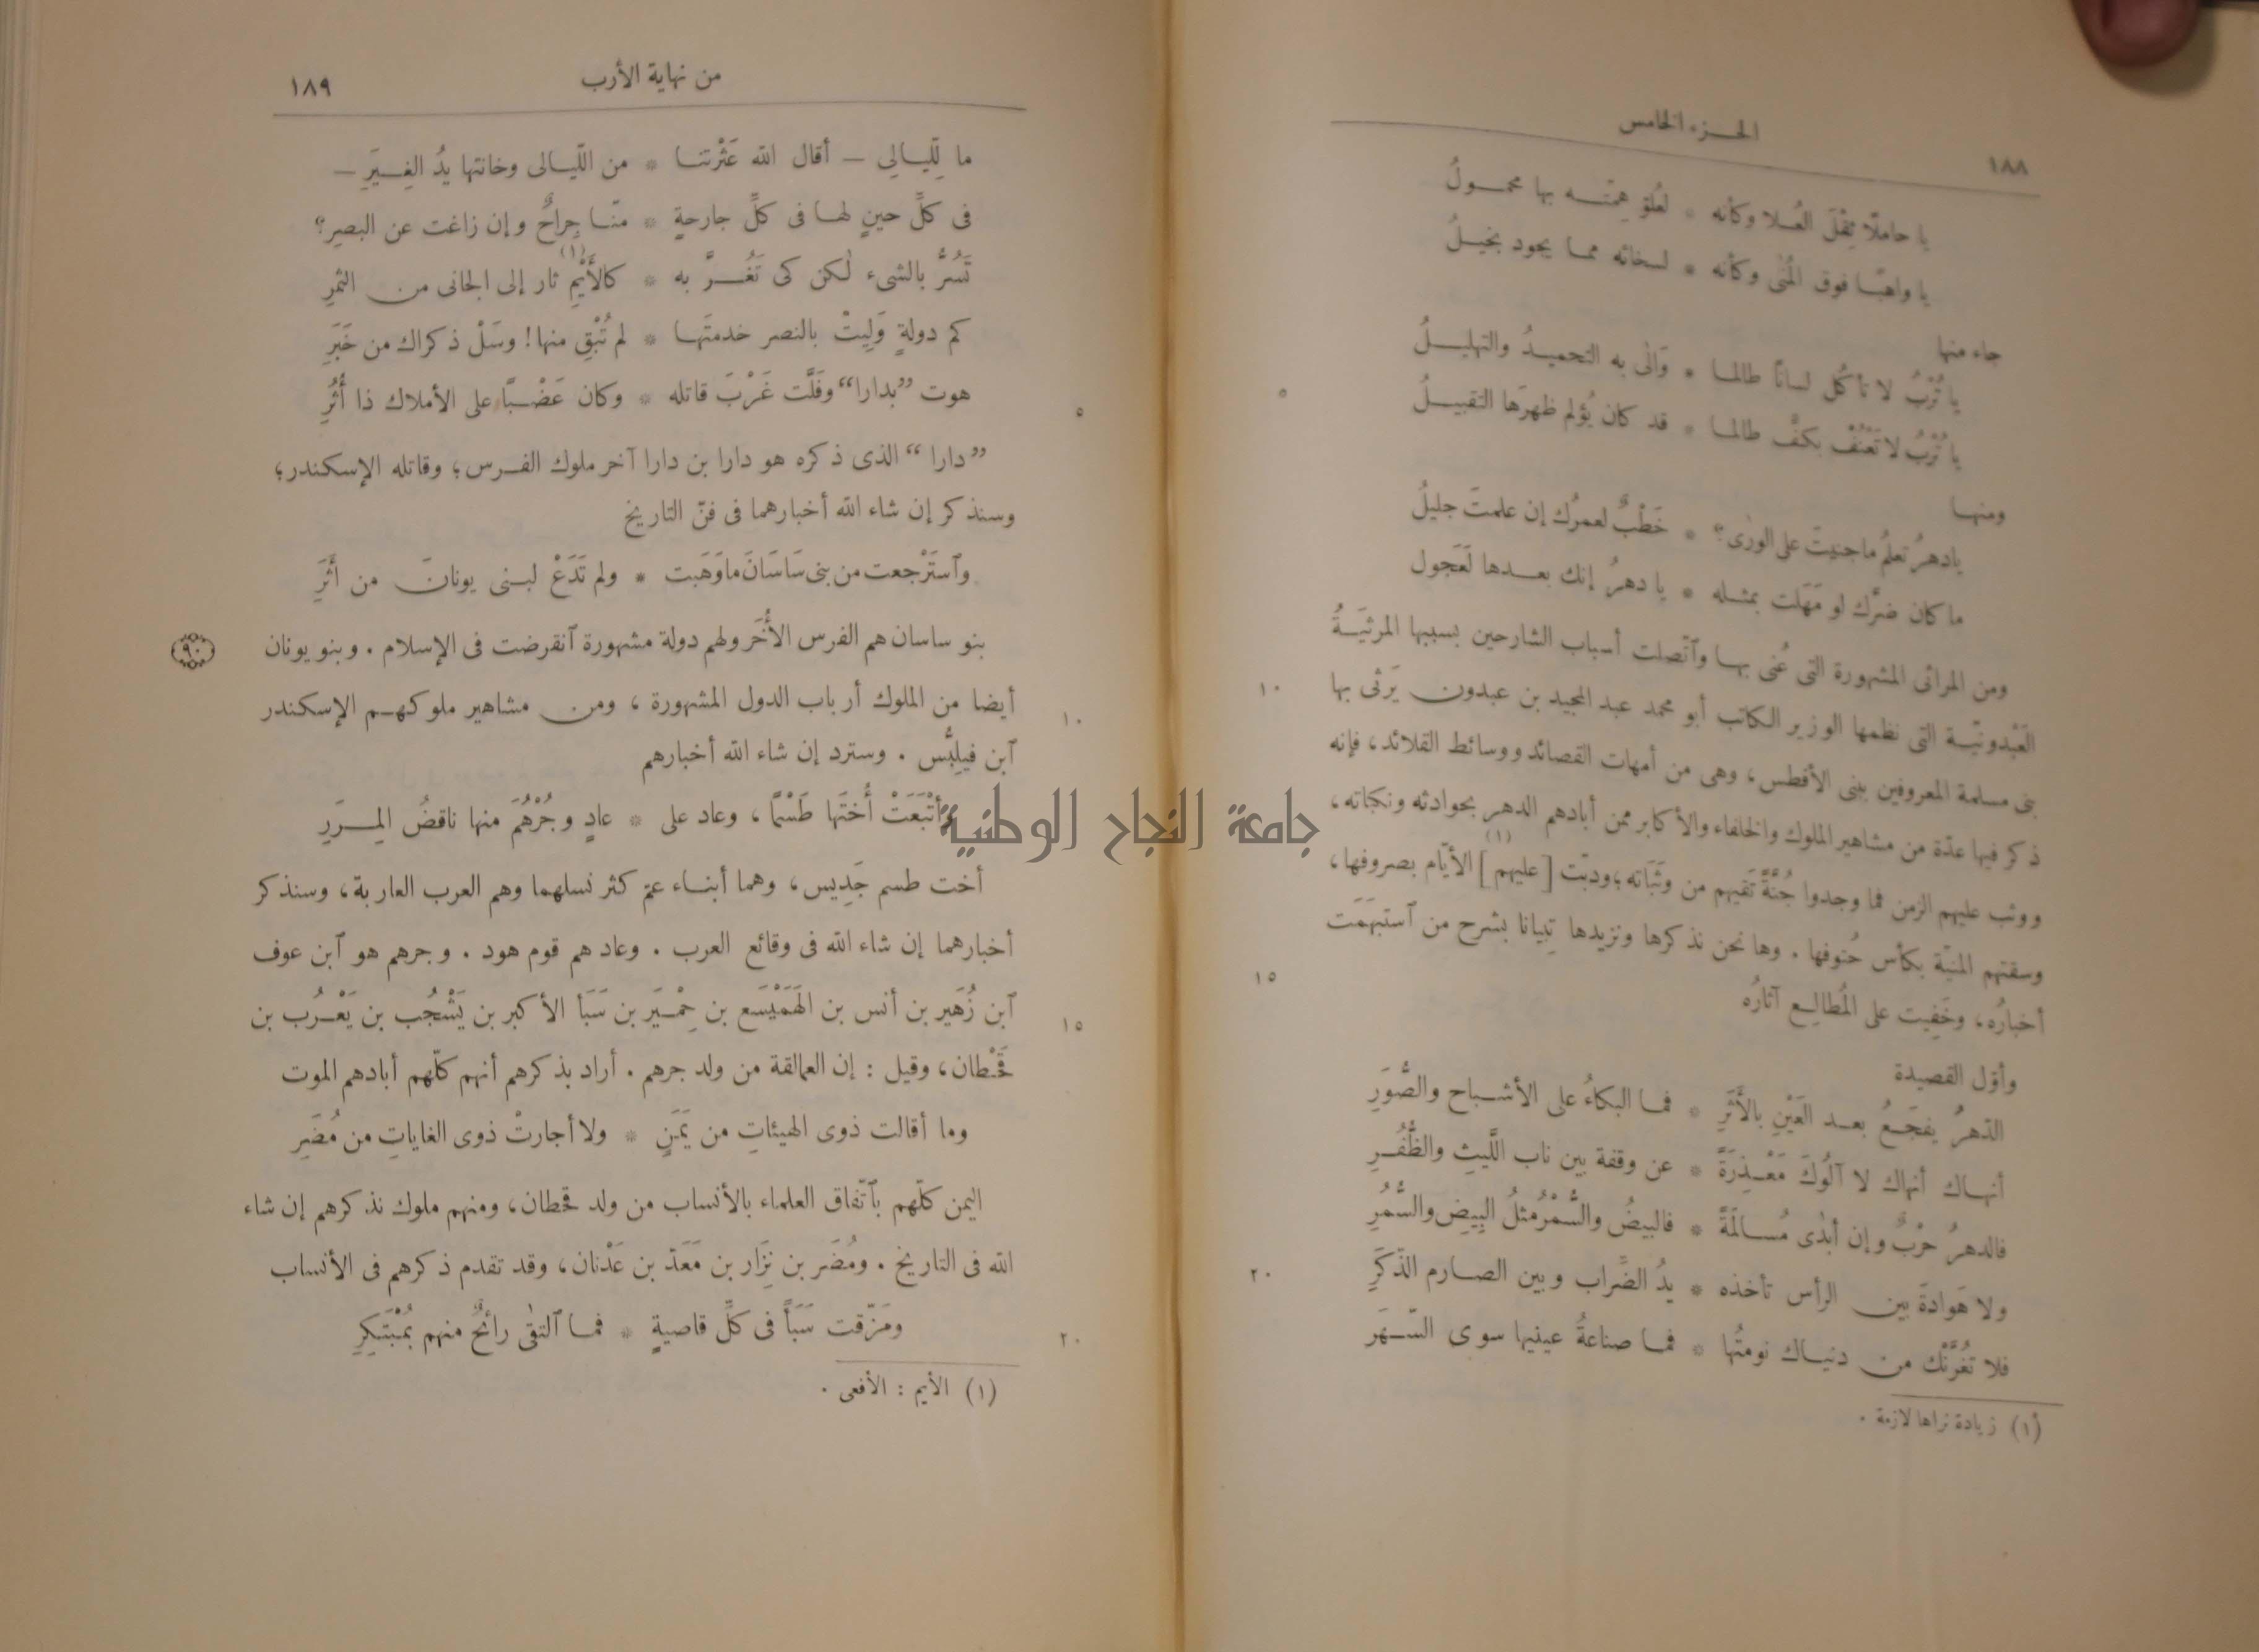 الجزء الخامس
١٨٨
يا حاملًا ثِقْلَ العُلا وكأنه * لعُلوّ هِمّته بها محمولُ
يا واهبًا فوق المُنَى وكأنه * لسخائه مما يجود بخيلُ
جاء منها
يا تُرْبُ لا تأكُل لسانًا طالما * وَالَى به التحميدُ والتهليلُ
يا تُرْبُ لا تَعْنُفْ بكفٍّ طالما * قد كان يُؤلم ظهرَها التقبيلُ
٥
ومنها
يادهرُ تعلمُ ماجنيتَ على الورَى؟ * خَطْبٌ لعمرُك إن علمتَ جليلُ
ما كان ضرَّك لو مَهَلت بمثله * يا دهرُ إنك بعدها لَعَجول
ومن المراثى المشهورة التى عُنى بها وٱتّصلت أسباب الشارحين بسببها المرثيَةُ
العَبْدونيّة التى نظمها الوزير الكاتب أبو محمد عبد المجيد بن عبدون يَرثى بها
١٠
بنى مسلمة المعروفين ببنى الأفطس، وهى من أمهات القصائد ووسائط القلائد، فإنه
ذكر فيها عدّة من مشاهير الملوك والخلفاء والأكابر ممن أبادهم الدهر بحوادثه ونكباته،
ووثب عليهم الزمن فما وجدوا جُنَّةً تَقيهم من وَثَبَاته؛ ودبّت [عليهم](١) الأيّام بصروفها،
وسقتهم المنيّة بكأس حُتوفها. وها نحن نذكرها ونزيدها تِبيانا بشرح من ٱستبهَمَت
أخبارُه، وخَفِيت على المُطالِع آثارُه
١٥
وأوّل القصيدة
الدّهرُ يفجَعُ بعد العَيْنِ بالأَثَرِ * فما البكاءُ على الأشباح والصُّوَرِ
أنهاك أنهاك لا آلُوكَ مَعْذِرَةً * عن وقفة بين ناب اللَّيثِ والظُّفُرِ
فالدهرُ حرْبٌ وإن أبدَى مُسالَمَةً * فالبيضُ والسُّمْرُ مثلُ البِيضِ والسُّمُرِ
ولا هَوادةَ بين الرأس تأخذه * يدُ الضِّراب وبين الصارم الذَّكَرِ
٢٠
فلا تَغُرَّنْك من دنياك نومتُها * فما صناعةُ عينيها سوى السّهَر
(١) زيادة نراها لازمة .
من نهاية الأرب
١٨٩
ما لِلّيالِى — أقال الله عَثْرتنا * من اللّيالى وخانتها يدُ الغِيَرِ —
فى كلّ حينٍ لها فى كلّ جارحةٍ * منّا جِراحٌ وإن زاغت عن البصرِ؟
تَسُرُّ بالشىء لٰكن كى تَغُرَّ به * كالأَيْمِ(١) ثار إلى الجانى من الثمرِ
كم دولةٍ وَلِيتْ بالنصر خدمتَها * لم تُبْقِ منها! وسَلْ ذكراك من خَبَرِ
هوت ”بدارا“ وفَلَّت غَرْبَ قاتله * وكان عَضْبًا على الأملاك ذا أُثُرِ
٥
”دارا“ الذى ذكره هو دارا بن دارا آخر ملوك الفرس؛ وقاتله الإسكندر؛
وسنذكر إن شاء الله أخبارهما فى فنّ التاريخ
وٱستَرْجعت من بنى سَاسَانَ ماوَهَبت * ولم تَدَعْ لبنى يونانَ من أَثَرِ
بنو ساسان هم الفرس الأُخَر ولهم دولة مشهورة ٱنقرضت فى الإسلام . وبنو يونان
٩٠
أيضا من الملوك أرباب الدول المشهورة، ومن مشاهير ملوكهم الإسكندر
١٠
ٱبن فيلِبُّس . وسترد إن شاء الله أخبارهم
وأتْبَعَتْ أُختَها طَسْمًا، وعاد على * عادٍ وجُرْهُمَ منها ناقضُ المِرَرِ
جامعة النجاح الوطنية
أخت طسم جَدِيس، وهما أبناء عمّ كثر نسلهما وهم العرب العاربة، وسنذكر
أخبارهما إن شاء الله فى وقائع العرب . وعاد هم قوم هود . وجرهم هو ٱبن عوف
ٱبن زُهَير بن أنس بن الهَمَيْسَع بن حِمْيَر بن سَبَأ الأكبر بن يَشْجُب بن يَعْرُب بن
١٥
قَحْطان، وقيل : إن العمالقة من ولد جرهم . أراد بذكرهم أنهم كلّهم أبادهم الموت
وما أقالت ذوى الهيئاتِ من يَمَنٍ * ولا أجارتْ ذوى الغاياتِ من مُضَرِ
اليمن كلّهم بٱتّفاق العلماء بالأنساب من ولد قحطان، ومنهم ملوك نذكرهم إن شاء
الله فى التاريخ . ومُضَر بن نِزَار بن مَعَدّ بن عَدْنان، وقد تقدم ذكرهم فى الأنساب
ومَزّقت سَبَأً فى كلّ قاصيةٍ * فما ٱلتقَى رائحٌ منهم بمُبْتَكِرِ
٢٠
(١) الأيم : الأفعى .